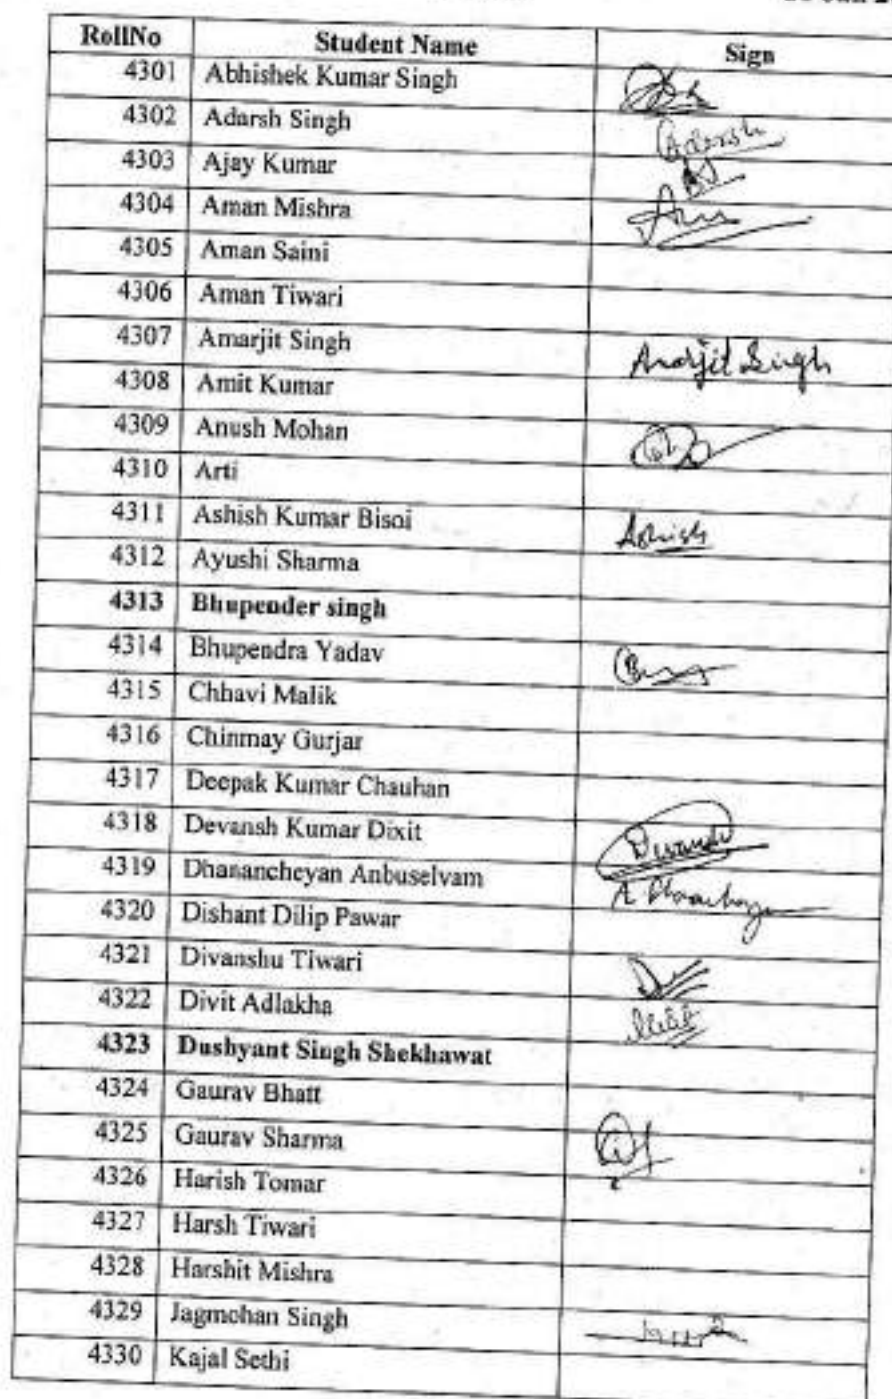 RollNo Student Name Sign
4301 Abhishek Kumar Singh
4302 Adarsh Singh Adarsh
4303 Ajay Kumar
4304 Aman Mishra
4305 Aman Saini
4306 Aman Tiwari
4307 Amarjit Singh Amarjit Singh
4308 Amit Kumar
4309 Anush Mohan
4310 Arti
4311 Ashish Kumar Bisoi Ashish
4312 Ayushi Sharma
4313 Bhupender singh
4314 Bhupendra Yadav
4315 Chhavi Malik
4316 Chinmay Gurjar
4317 Deepak Kumar Chauhan
4318 Devansh Kumar Dixit Devansh
4319 Dhanancheyan Anbuselvam
4320 Dishant Dilip Pawar
4321 Divanshu Tiwari
4322 Divit Adlakha
4323 Dushyant Singh Shekhawat
4324 Gaurav Bhatt
4325 Gaurav Sharma
4326 Harish Tomar
4327 Harsh Tiwari
4328 Harshit Mishra
4329 Jagmohan Singh
4330 Kajal Sethi